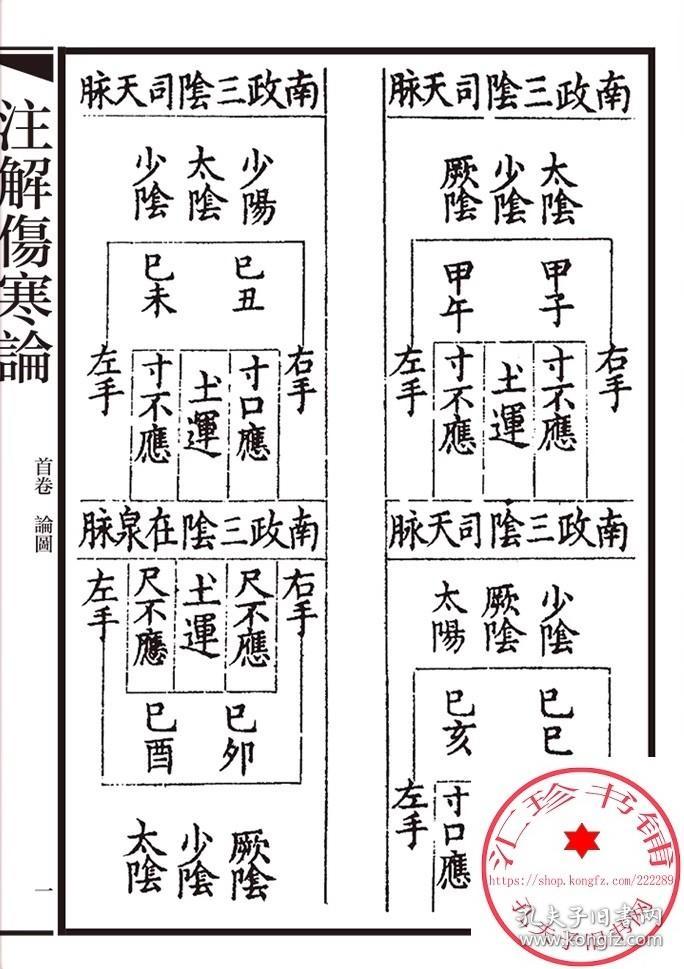 南政三陰司天脉
太陰
少陰
厥陰
甲子
甲午
右手
寸不應
土運
寸不應
左手
南政三陰司天脉
少陰
厥陰
太陽
巳巳
巳亥
寸口應
左手
南政三陰司天脉
少陽
太陰
少陰
巳丑
巳未
右手
寸口應
土運
寸不應
左手
南政三陰在泉脉
右手
尺不應
土運
尺不應
左手
巳卯
巳酉
厥陰
少陰
太陰
注解傷寒論
首卷 論圖
一
汇珍书铺
https://shop.kongfz.com/222289
孔夫子旧书网
孔夫子旧书网
www.kongfz.com